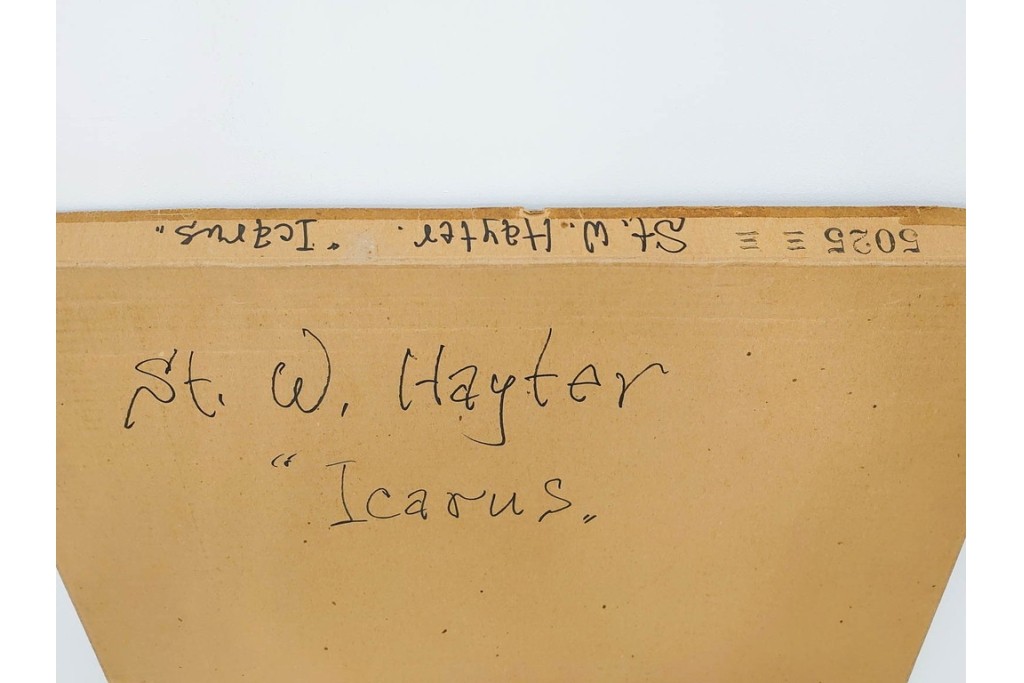 5025 ≡ ≡ St. W. Hayter. "Icarus„
St. W. Hayter
“Icarus„